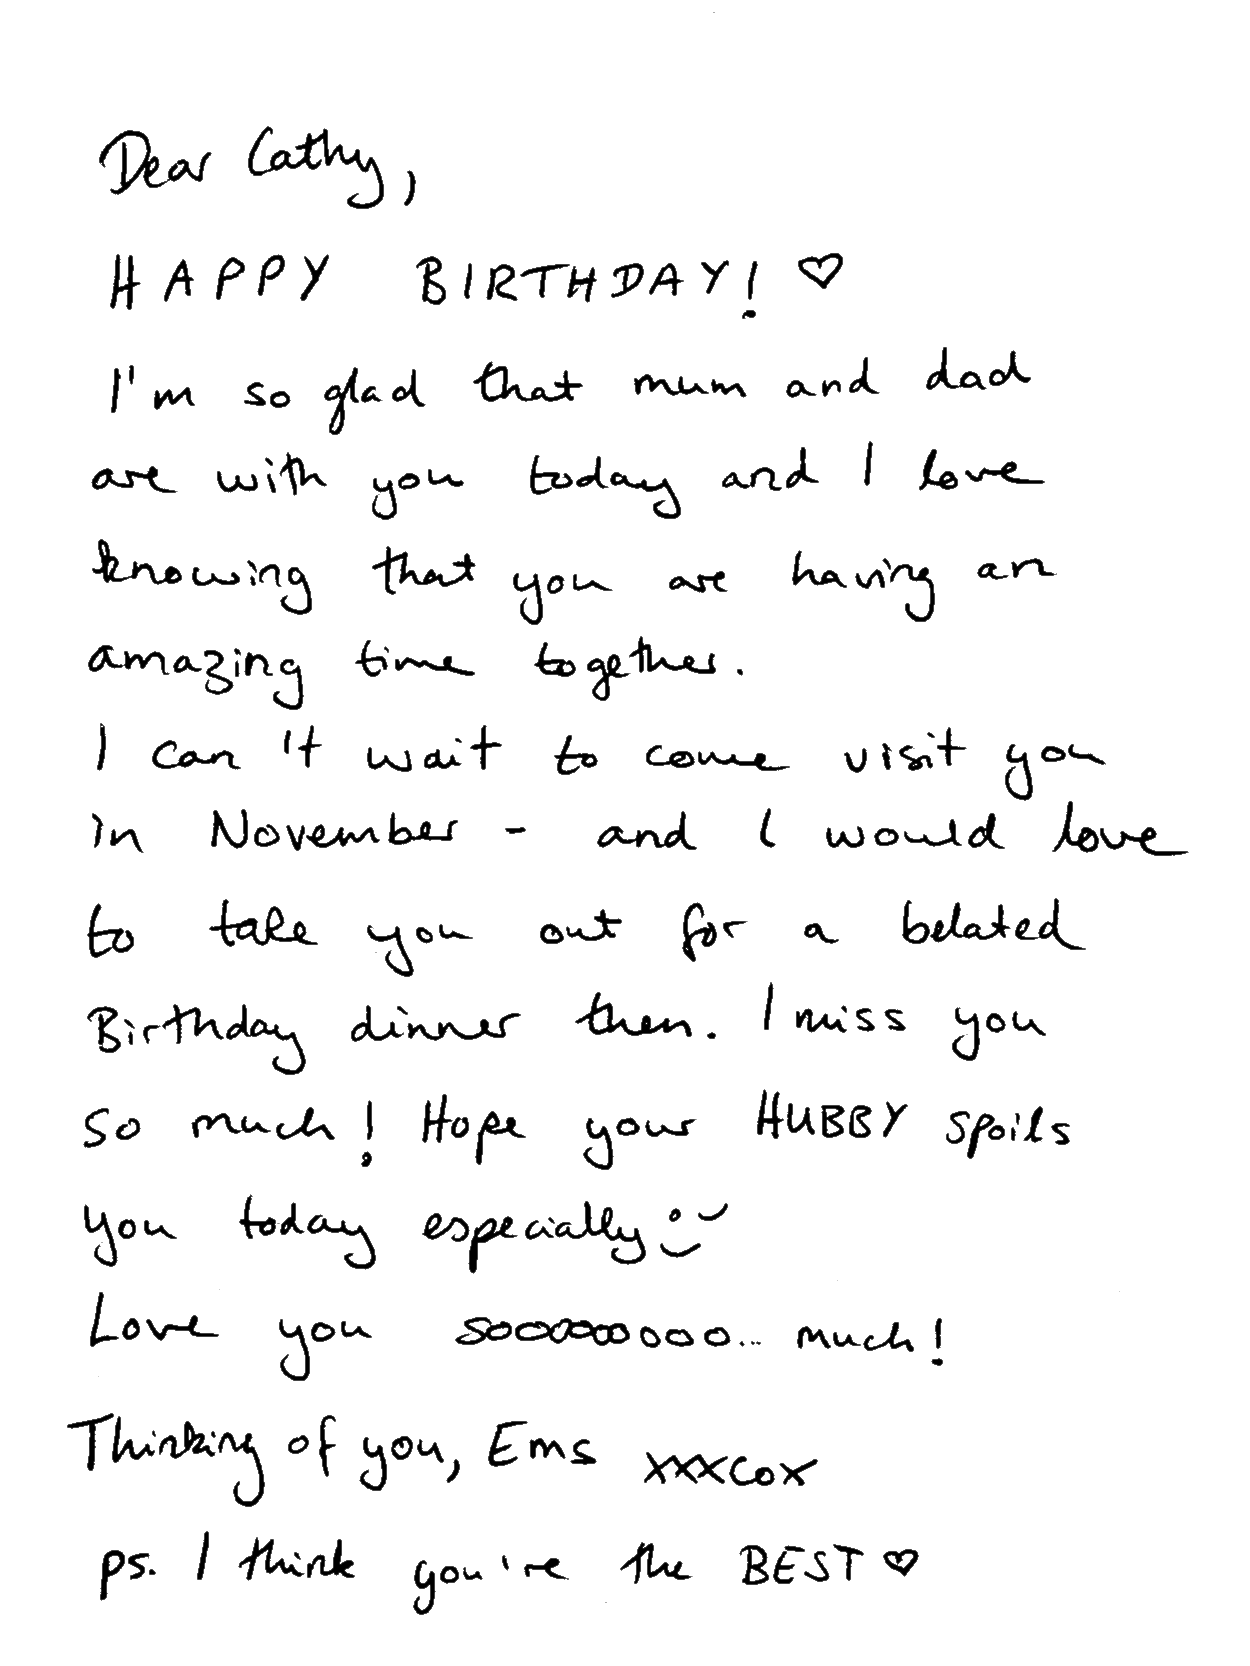 Dear Cathy,
HAPPY BIRTHDAY! ♡
I'm so glad that mum and dad
are with you today and I love
knowing that you are having an
amazing time together.
I can't wait to come visit you
in November - and I would love
to take you out for a belated
Birthday dinner then. I miss you
so much! Hope your HUBBY spoils
you today especially
Love you sooooooooo... much!
Thinking of you, Ems xxxcox
ps. I think you're the BEST ♡